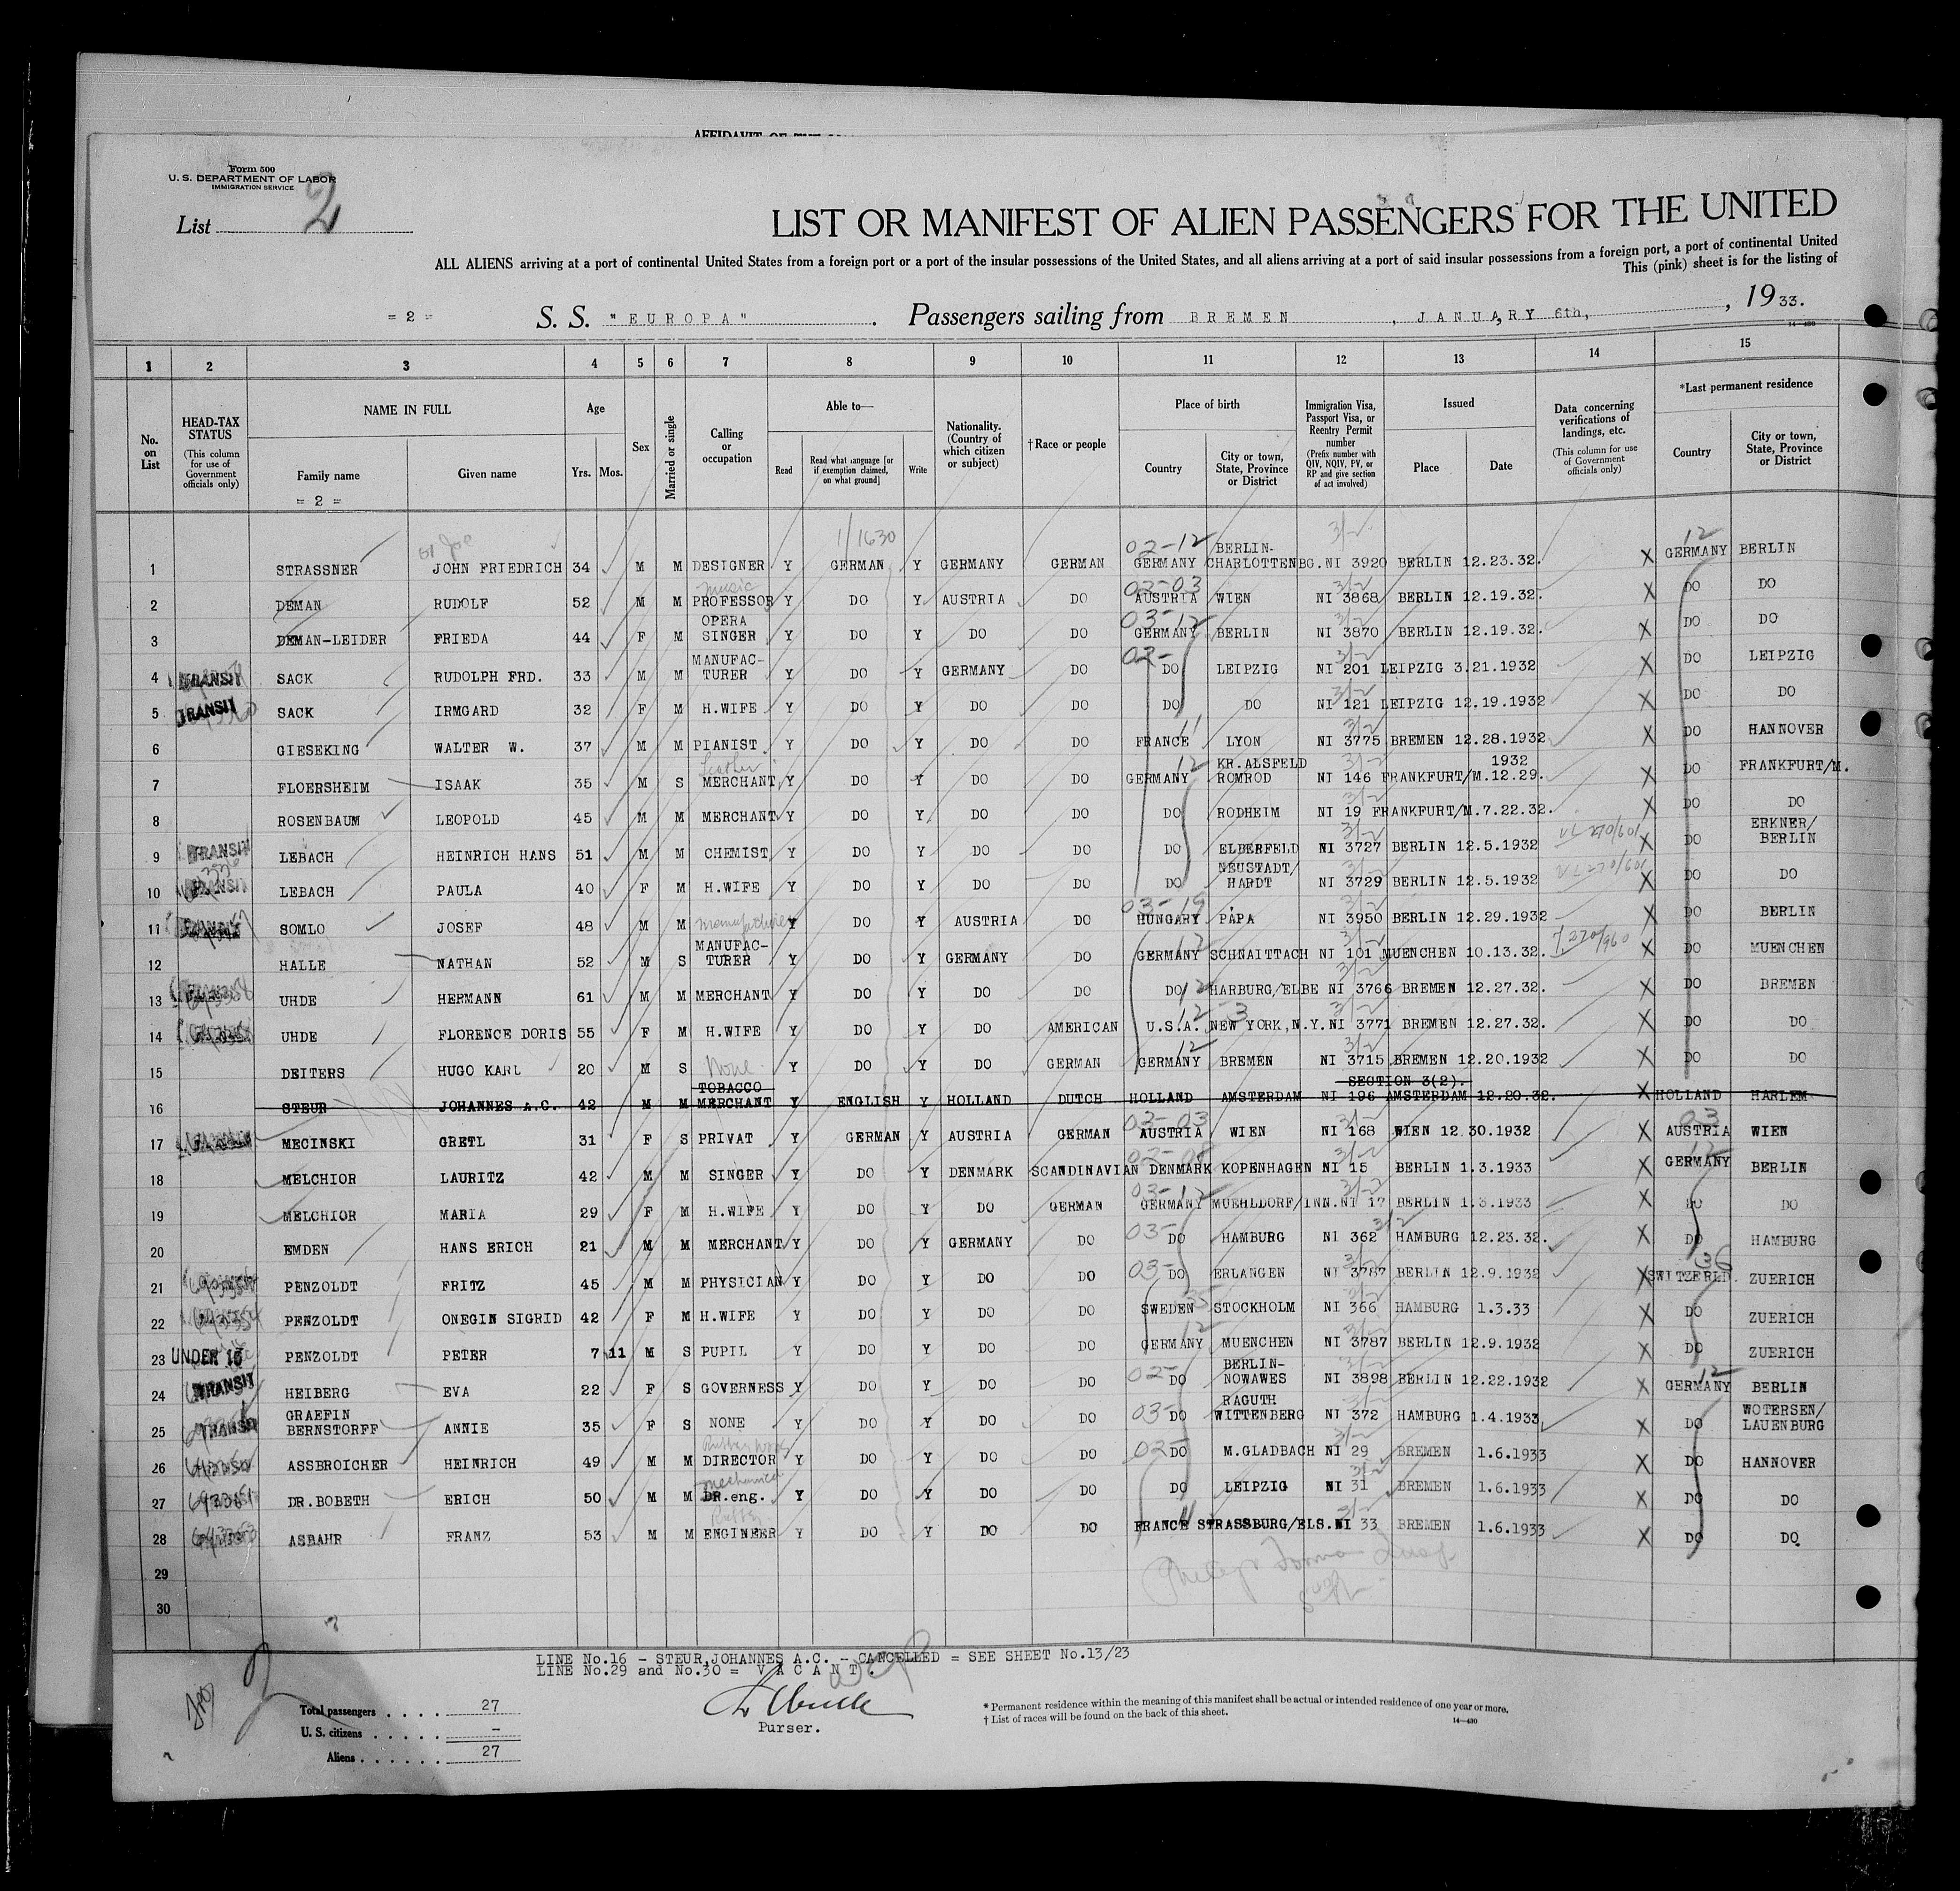 AFFIDAVIT OF THE
Form 500
U. S. DEPARTMENT OF LABOR
IMMIGRATION SERVICE
List 2
LIST OR MANIFEST OF ALIEN PASSENGERS FOR THE UNITED
ALL ALIENS arriving at a port of continental United States from a foreign port or a port of the insular possessions of the United States, and all aliens arriving at a port of said insular possessions from a foreign port, a port of continental United
This (pink) sheet is for the listing of
= 2 = S. S. "EUROPA" . Passengers sailing from BREMEN , JANUARY 6th, , 1933.
14—430
1 2 3 4 5 6 7 8 9 10 11 12 13 14 15
No. on List
HEAD-TAX STATUS (This column for use of Government officials only)
NAME IN FULL Family name Given name
= 2 =
Age Yrs. Mos.
Sex
Married or single
Calling or occupation
Able to— Read Read what language [or if exemption claimed, on what ground] Write
Nationality. (Country of which citizen or subject)
†Race or people
Place of birth Country City or town, State, Province or District
Immigration Visa, Passport Visa, or Reentry Permit number (Prefix number with QIV, NQIV, PV, or RP and give section of act involved)
Issued Place Date
Data concerning verifications of landings, etc. (This column for use of Government officials only)
*Last permanent residence Country City or town, State, Province or District
1/1630 3/2 12
1 STRASSNER JOHN FRIEDRICH 34 M M DESIGNER Y GERMAN Y GERMANY GERMAN 02-12 GERMANY BERLIN-CHARLOTTENBG. NI 3920 BERLIN 12.23.32. X GERMANY BERLIN
2 DEMAN RUDOLF 52 M M music PROFESSOR Y DO Y AUSTRIA DO 03-03 AUSTRIA WIEN NI 3868 BERLIN 12.19.32. X DO DO
3 DEMAN-LEIDER FRIEDA 44 F M OPERA SINGER Y DO Y DO DO 03-12 GERMANY BERLIN NI 3870 BERLIN 12.19.32. X DO DO
4 TRANSIT SACK RUDOLPH FRD. 33 M M MANUFAC-TURER Y DO Y GERMANY DO 02- DO LEIPZIG NI 201 LEIPZIG 3.21.1932 X DO LEIPZIG
5 TRANSIT SACK IRMGARD 32 F M H.WIFE Y DO Y DO DO DO DO NI 121 LEIPZIG 12.19.1932 X DO DO
6 GIESEKING WALTER W. 37 M M PIANIST Y DO Y DO DO 11 FRANCE LYON NI 3775 BREMEN 12.28.1932 X DO HANNOVER
7 FLOERSHEIM ISAAK 35 M S leather MERCHANT Y DO Y DO DO 12 GERMANY KR.ALSFELD ROMROD NI 146 FRANKFURT/M. 12.29. 1932 X DO FRANKFURT/M.
8 ROSENBAUM LEOPOLD 45 M M MERCHANT Y DO Y DO DO DO RODHEIM NI 19 FRANKFURT/M. 7.22.32. X DO DO
9 TRANSIT LEBACH HEINRICH HANS 51 M M CHEMIST Y DO Y DO DO DO ELBERFELD NI 3727 BERLIN 12.5.1932 X DO ERKNER/BERLIN
10 TRANSIT LEBACH PAULA 40 F M H.WIFE Y DO Y DO DO DO NEUSTADT/HARDT NI 3729 BERLIN 12.5.1932 X DO DO
11 SOMLO JOSEF 48 M M manufacturer Y DO Y AUSTRIA DO 03-19 HUNGARY PAPA NI 3950 BERLIN 12.29.1932 X DO BERLIN
12 HALLE NATHAN 52 M S MANUFAC-TURER Y DO Y GERMANY DO 12 GERMANY SCHNAITTACH NI 101 MUENCHEN 10.13.32. X DO MUENCHEN
13 UHDE HERMANN 61 M M MERCHANT Y DO Y DO DO DO 12 HARBURG/ELBE NI 3766 BREMEN 12.27.32. X DO BREMEN
14 UHDE FLORENCE DORIS 55 F M H.WIFE Y DO Y DO AMERICAN U.S.A. NEW YORK,N.Y. NI 3771 BREMEN 12.27.32. X DO DO
15 DEITERS HUGO KARL 20 M S None Y DO Y DO GERMAN 12 GERMANY BREMEN NI 3715 BREMEN 12.20.1932 X DO DO
SECTION 3(2).
16 STEUR JOHANNES A.C. 42 M M TOBACCO MERCHANT Y ENGLISH Y HOLLAND DUTCH HOLLAND AMSTERDAM NI 196 AMSTERDAM 12.20.32. X HOLLAND HARLEM
17 MECINSKI GRETL 31 F S PRIVAT Y GERMAN Y AUSTRIA GERMAN 03-03 AUSTRIA WIEN NI 168 WIEN 12.30.1932 X 03 AUSTRIA WIEN
18 MELCHIOR LAURITZ 42 M M SINGER Y DO Y DENMARK SCANDINAVIAN DENMARK KOPENHAGEN NI 15 BERLIN 1.3.1933 X 12 GERMANY BERLIN
19 MELCHIOR MARIA 29 F M H.WIFE Y DO Y DO GERMAN 03-12 GERMANY MUEHLDORF/INN. NI 17 BERLIN 1.3.1933 X DO DO
20 EMDEN HANS ERICH 21 M M MERCHANT Y DO Y GERMANY DO 03- DO HAMBURG NI 362 HAMBURG 12.23.32. X DO HAMBURG
21 PENZOLDT FRITZ 45 M M PHYSICIAN Y DO Y DO DO 03- DO ERLANGEN NI 3787 BERLIN 12.9.1932 X 36 SWITZERLD. ZUERICH
22 PENZOLDT ONEGIN SIGRID 42 F M H.WIFE Y DO Y DO DO SWEDEN STOCKHOLM NI 366 HAMBURG 1.3.33 X DO ZUERICH
23 UNDER 16 PENZOLDT PETER 7 11 M S PUPIL Y DO Y DO DO 12 GERMANY MUENCHEN NI 3787 BERLIN 12.9.1932 X DO ZUERICH
24 TRANSIT HEIBERG EVA 22 F S GOVERNESS Y DO Y DO DO 02- DO BERLIN-NOWAWES NI 3898 BERLIN 12.22.1932 X 12 GERMANY BERLIN
25 TRANSIT GRAEFIN BERNSTORFF ANNIE 35 F S NONE Y DO Y DO DO 03- DO RAGUTH WITTENBERG NI 372 HAMBURG 1.4.1933 X DO WOTERSEN/LAUENBURG
26 ASSBROICHER HEINRICH 49 M M DIRECTOR Y DO Y DO DO 02- DO M.GLADBACH NI 29 BREMEN 1.6.1933 X DO HANNOVER
27 DR.BOBETH ERICH 50 M M mechanical DR.eng. Y DO Y DO DO DO LEIPZIG NI 31 BREMEN 1.6.1933 X DO DO
28 ASBAHR FRANZ 53 M M Rubber ENGINEER Y DO Y DO DO 11 FRANCE STRASSBURG/ELS. NI 33 BREMEN 1.6.1933 X DO DO.
29
30
LINE No.16 - STEUR,JOHANNES A.C. - CANCELLED = SEE SHEET No.13/23
LINE No.29 and No.30 = V A C A N T .
Total passengers . . . . 27
U. S. citizens . . . . . –
Aliens . . . . . . 27
Purser.
* Permanent residence within the meaning of this manifest shall be actual or intended residence of one year or more.
† List of races will be found on the back of this sheet.
14—430